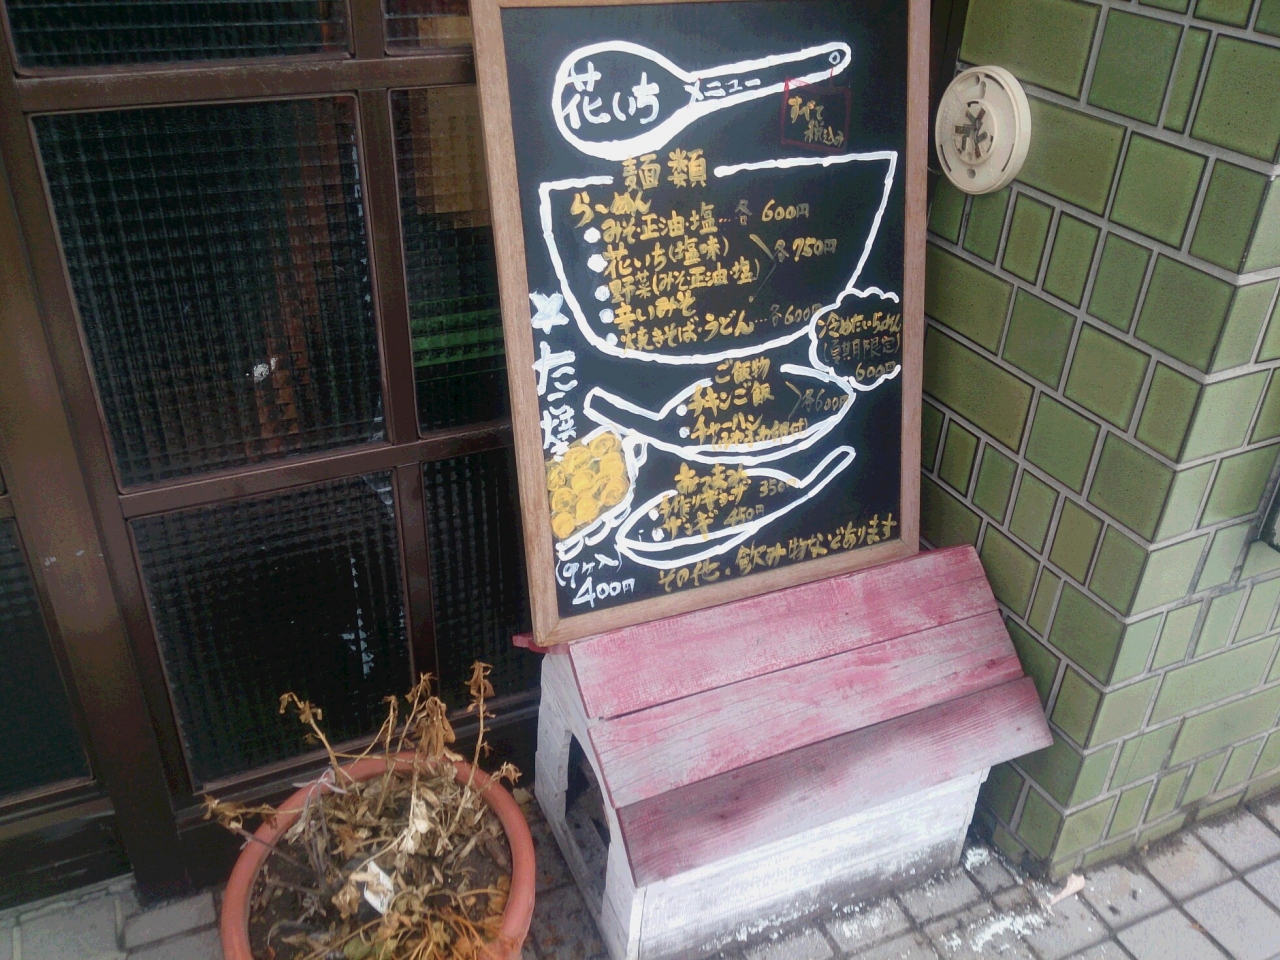 花いち
メニュー
すべて
税込み
麺類
らーめん
みそ・正油・塩…各600円
花いち(塩味)
野菜(みそ・正油・塩)
各750円
辛いみそ
焼きそば・うどん…各600円
冷めたいらーめん
(夏期限定)
600円
ご飯物
チキンご飯
チャーハン
各600円
手作りギョーザ 350
ザンギ 450円
その他、飲み物などあります
たこ焼
(9ケ入)
400円